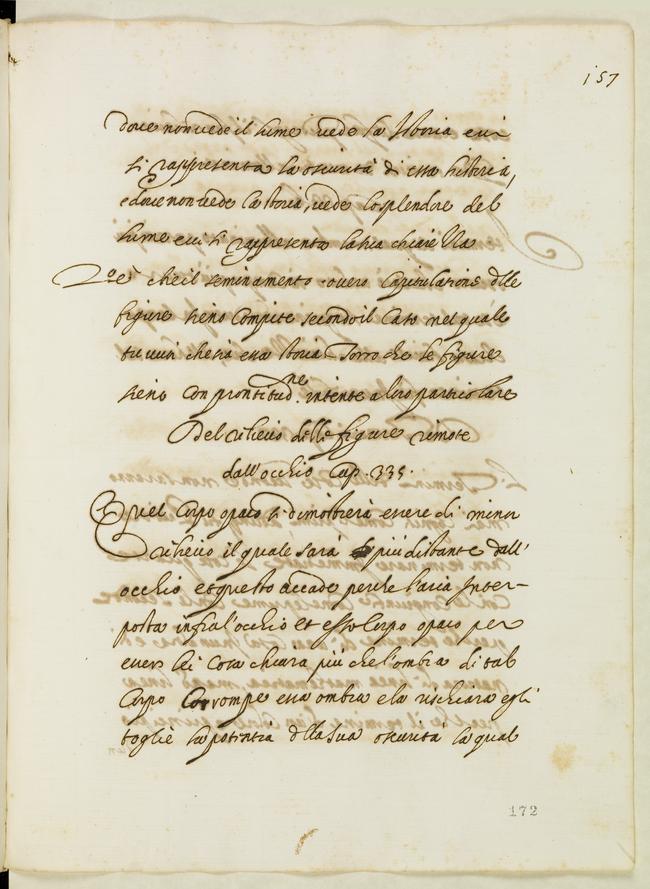 157
dove non vede il lume vede la storia e vi
si rappresenta la oscurità di essa historia,
e dove non vede la storia, vede lo splendore del
lume e vi si rappresenta la sua chiarezza
2.º è che il seminamento overo Capitulatione delle
figure sieno Compite secondo il Caso nel quale
tu vuoi che sia essa storia Terzo che le figure
sieno con prontitud.ne intente a loro particolare
Del rilievo delle figure remote
dall'occhio Cap. 335.
Quel Corpo opaco si dimostrerà essere di minor
rilievo il quale sarà più distante dall'
occhio et questo accade perche l'aria Inter-
posta infra l'occhio et esso Corpo opaco per
esser lei Cosa chiara più che l'ombra di tal
Corpo Corrompe essa ombra e la rischiara e gli
toglie la potentia della sua oscurità la qual
172